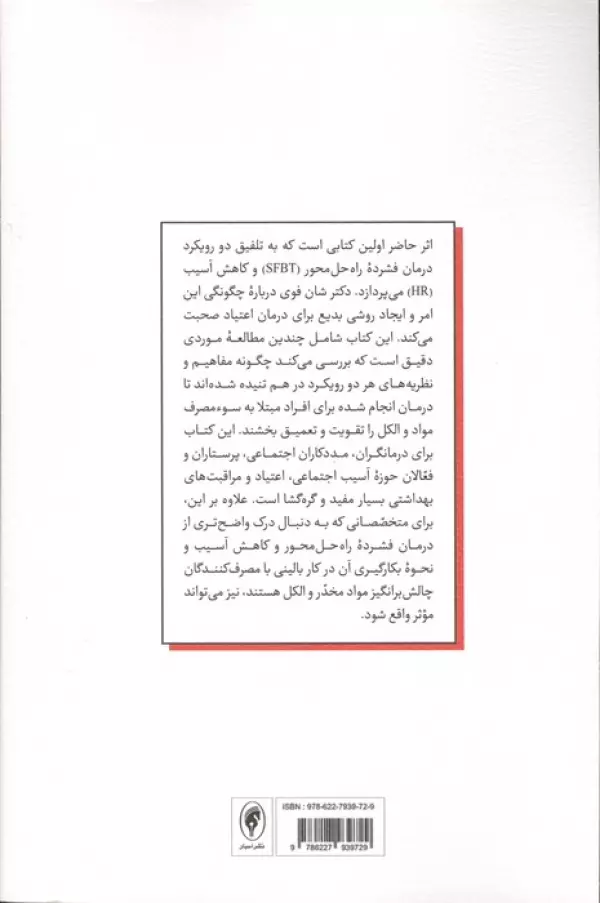 اثر حاضر اولین کتابی است که به تلفیق دو رویکرد
درمان فشردهٔ راه‌حل‌محور (SFBT) و کاهش آسیب
(HR) می‌پردازد. دکتر شان فوی دربارهٔ چگونگی این
امر و ایجاد روشی بدیع برای درمان اعتیاد صحبت
می‌کند. این کتاب شامل چندین مطالعهٔ موردی
دقیق است که بررسی می‌کند چگونه مفاهیم و
نظریه‌های هر دو رویکرد در هم تنیده شده‌اند تا
درمان انجام شده برای افراد مبتلا به سوءمصرف
مواد و الکل را تقویت و تعمیق بخشند. این کتاب
برای درمانگران، مددکاران اجتماعی، پرستاران و
فعّالان حوزهٔ آسیب اجتماعی، اعتیاد و مراقبت‌های
بهداشتی بسیار مفید و گره‌گشا است. علاوه بر این،
برای متخصّصانی که به دنبال درک واضح‌تری از
درمان فشردهٔ راه‌حل‌محور و کاهش آسیب و
نحوهٔ بکارگیری آن در کار بالینی با مصرف‌کنندگان
چالش‌برانگیز مواد مخدّر و الکل هستند، نیز می‌تواند
مؤثر واقع شود.
ISBN : 978-622-7939-72-9
9 786227 939729